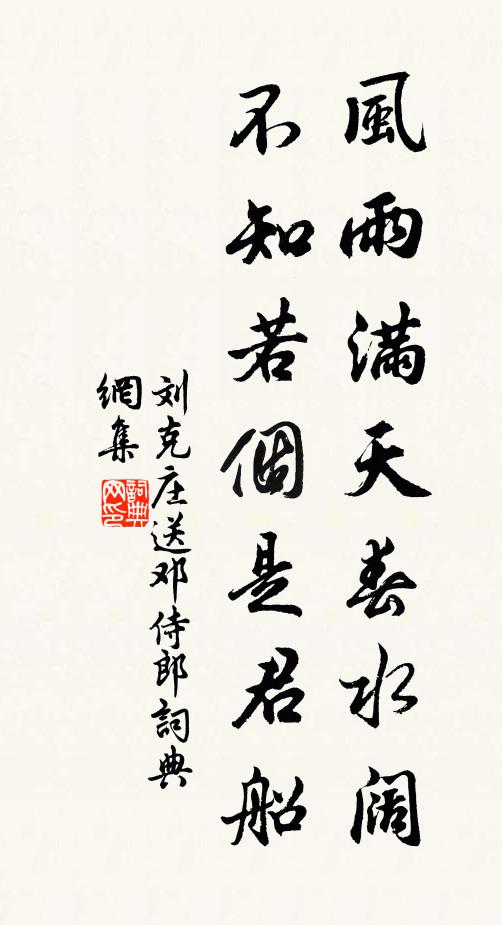 風雨滿天春水阔
不知若個是君船
刘克庄送邓侍郎詞典
網集
詞典
网印